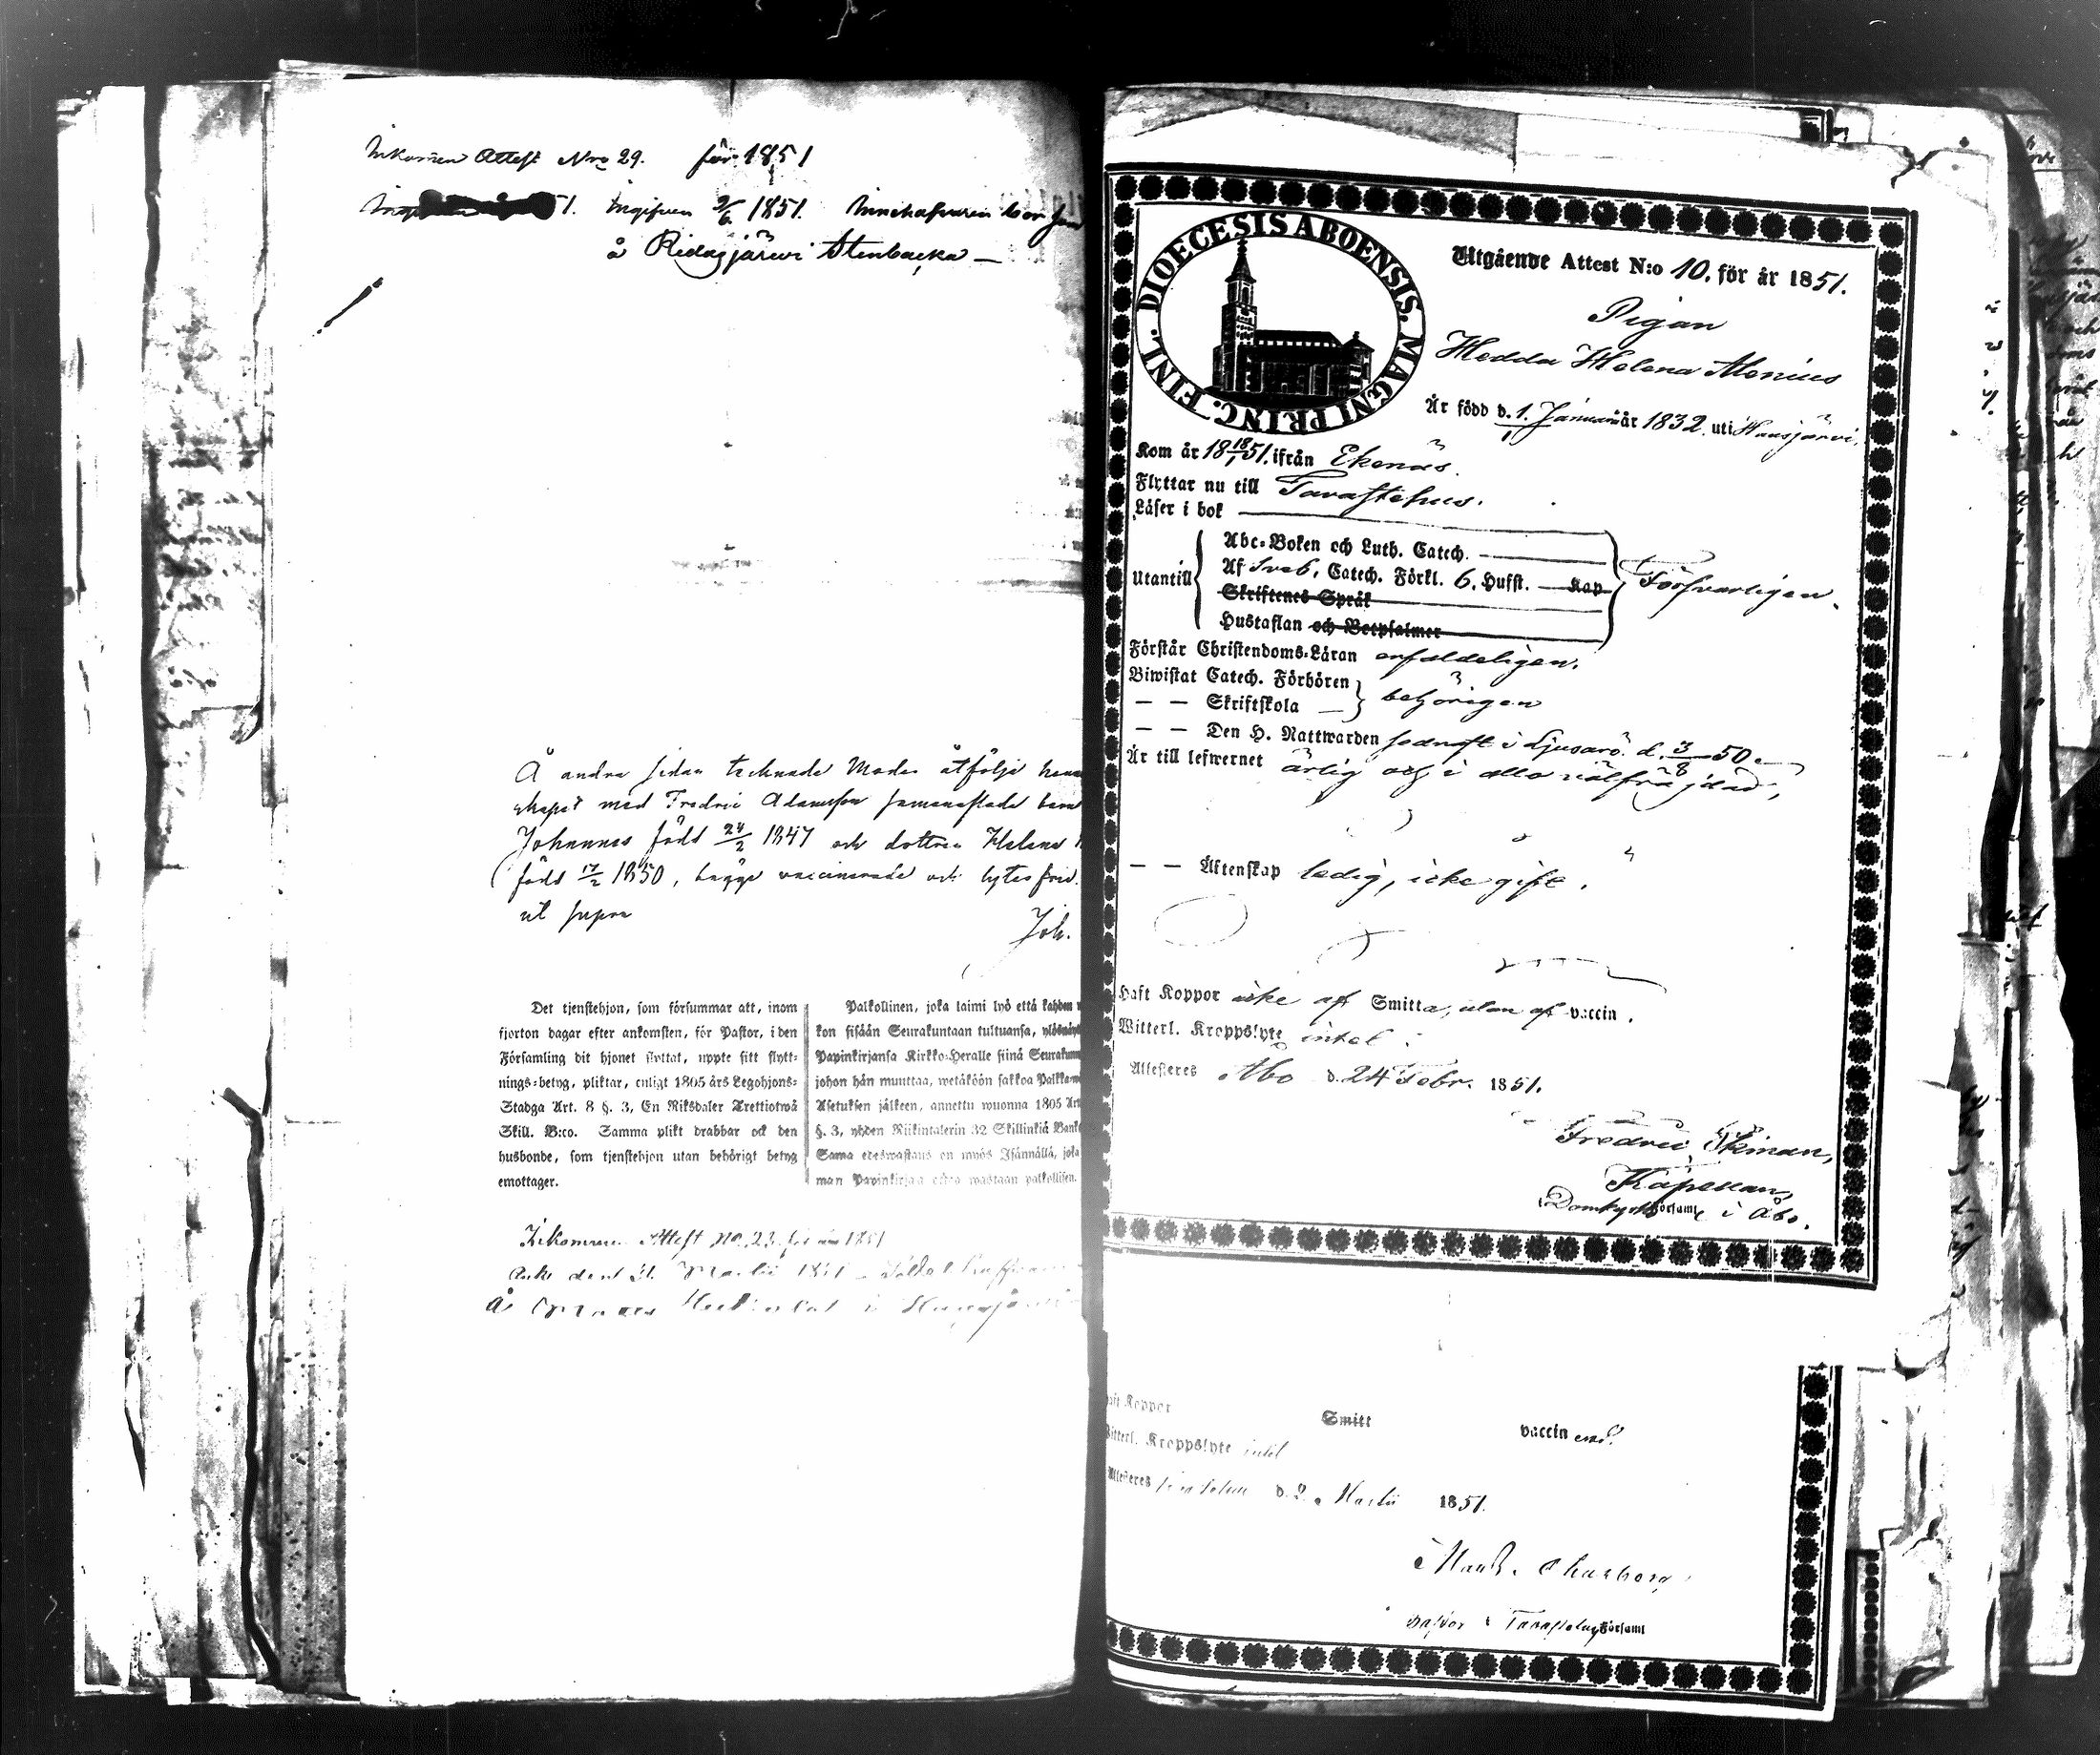 Inkommen Attest Nro 29. för 1851
51. Ingifven 9/6 1851. Innehafvaren bor
å Ridasjärwi Stenbacka —
Å andra sidan tecknade Moder åtfölja
skapet med Fredric Adamsson sammanaflade barn
Johannes född 24/2 1847 och dottren Helena
född 17/2 1850, bägge vaccinerade och lytesfria.
ut supra
Joh.
Det tjenstehjon, som försummar att, inom
fjorton dagar efter ankomsten, för Pastor, i den
Församling dit hjonet flyttat, uppte sitt flytt-
nings-betyg, pliktar, enligt 1805 års Legohjons-
Stadga Art. 8 §. 3, En Riksdaler Trettiotwå
Skill. B:co. Samma plikt drabbar ock den
husbonde, som tjenstehjon utan behörigt betyg
emottager.
Palkollinen, joka laimi lyö että kahden
kon sisään Seurakuntaan tultuansa,
Papinkirjansa Kirkko-Heralle siinä
johon hän muuttaa, wetäköön sakkoa
Asetuksen jälkeen, annettu wuonna 1805
§. 3, yhden Riikintalerin 32 Skillinkiä
Sama edeswastaus on myös Isännällä, joka
man Papinkirjaa ottaa wastaan palkollisen.
Inkommen Attest No. 23. för 1851
Martii 1851
DIOECESIS ABOENSIS. MAGNI PRINC. FINL.
Utgående Attest N:o 10. för år 1851.
Pigan
Hedda Helena Menius
Är född d. 1. Januari år 1832. uti Hausjärvi.
Kom år 18 18/1 51. ifrån Ekenäs.
Flyttar nu till Tavastehus.
Läser i bok
Abc-Boken och Luth. Catech.
Utantill Af Sveb. Catech. Förkl. 6. Hufst. Kap Försvarligen.
Skriftenes Språk
Hustaflan och Botpsalmer
Förstår Christendoms-Läran enfaldeligen.
Biwistat Catech. Förhören
— — Skriftskola behörigen
— — Den H. Nattwarden sednast i Ljusarö d. 3/8 50.
Är till lefwernet ärlig och i allo välfräjdad,
— — Äktenskap ledig, icke gift.
Haft Koppor icke af Smitta, utan af vaccin.
Witterl. Kroppslyte intet.
Attesteres Åbo d. 24 Febr. 1851.
Fredric Ekman,
Kapellan,
Domkyrko Församl i Åbo.
Haft Koppor Smitt vaccin
Witterl. Kroppslyte intet
Attesteres d. 2. Martii 1851.
Församl